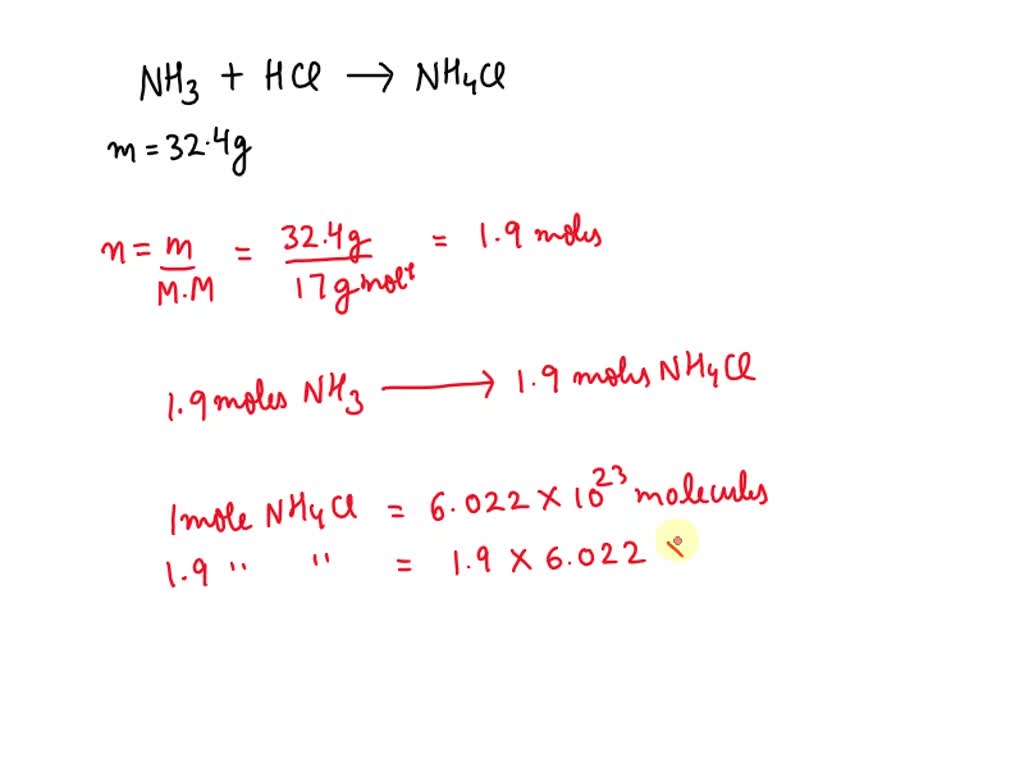 NH₃ + HCl → NH₄Cl
m = 32.4g
n = m/M.M = 32.4g/17 g mol⁻¹ = 1.9 moles
1.9 moles NH₃ → 1.9 moles NH₄Cl
1 mole NH₄Cl = 6.022 × 10²³ molecules
1.9 " " = 1.9 × 6.022